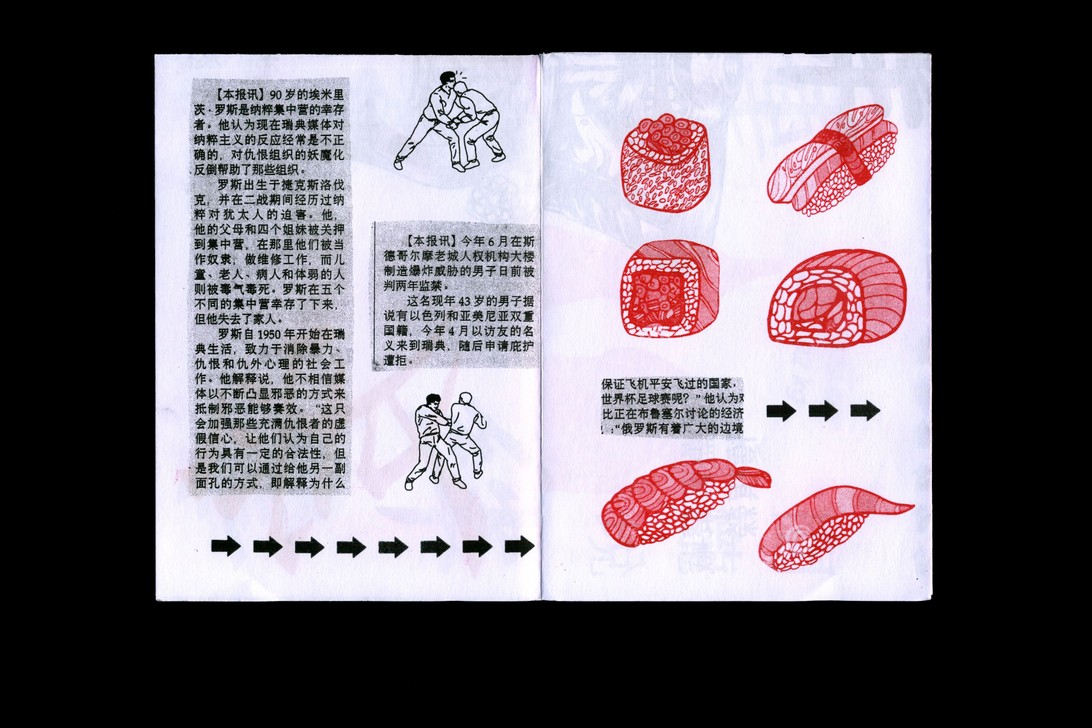 【本报讯】90 岁的埃米里
茨·罗斯是纳粹集中营的幸存
者。他认为现在瑞典媒体对
纳粹主义的反应经常是不正
确的，对仇恨组织的妖魔化
反倒帮助了那些组织。
罗斯出生于捷克斯洛伐
克，并在二战期间经历过纳
粹对犹太人的迫害。他，
他的父母和四个姐妹被关押
到集中营，在那里他们被当
作奴隶，做维修工作，而儿
童、老人、病人和体弱的人
则被毒气毒死。罗斯在五个
不同的集中营幸存了下来，
但他失去了家人。
罗斯自 1950 年开始在瑞
典生活，致力于消除暴力、
仇恨和仇外心理的社会工
作。他解释说，他不相信媒
体以不断凸显邪恶的方式来
抵制邪恶能够奏效。“这只
会加强那些充满仇恨者的虚
假信心，让他们认为自己的
行为具有一定的合法性，但
是我们可以通过给他另一副
面孔的方式，即解释为什么
【本报讯】今年 6 月在斯
德哥尔摩老城人权机构大楼
制造爆炸威胁的男子日前被
判两年监禁。
这名现年 43 岁的男子据
说有以色列和亚美尼亚双重
国籍，今年 4 月以访友的名
义来到瑞典，随后申请庇护
遭拒。
保证飞机平安飞过的国家，
世界杯足球赛呢？”他认为
比正在布鲁塞尔讨论的经济
：“俄罗斯有着广大的边境